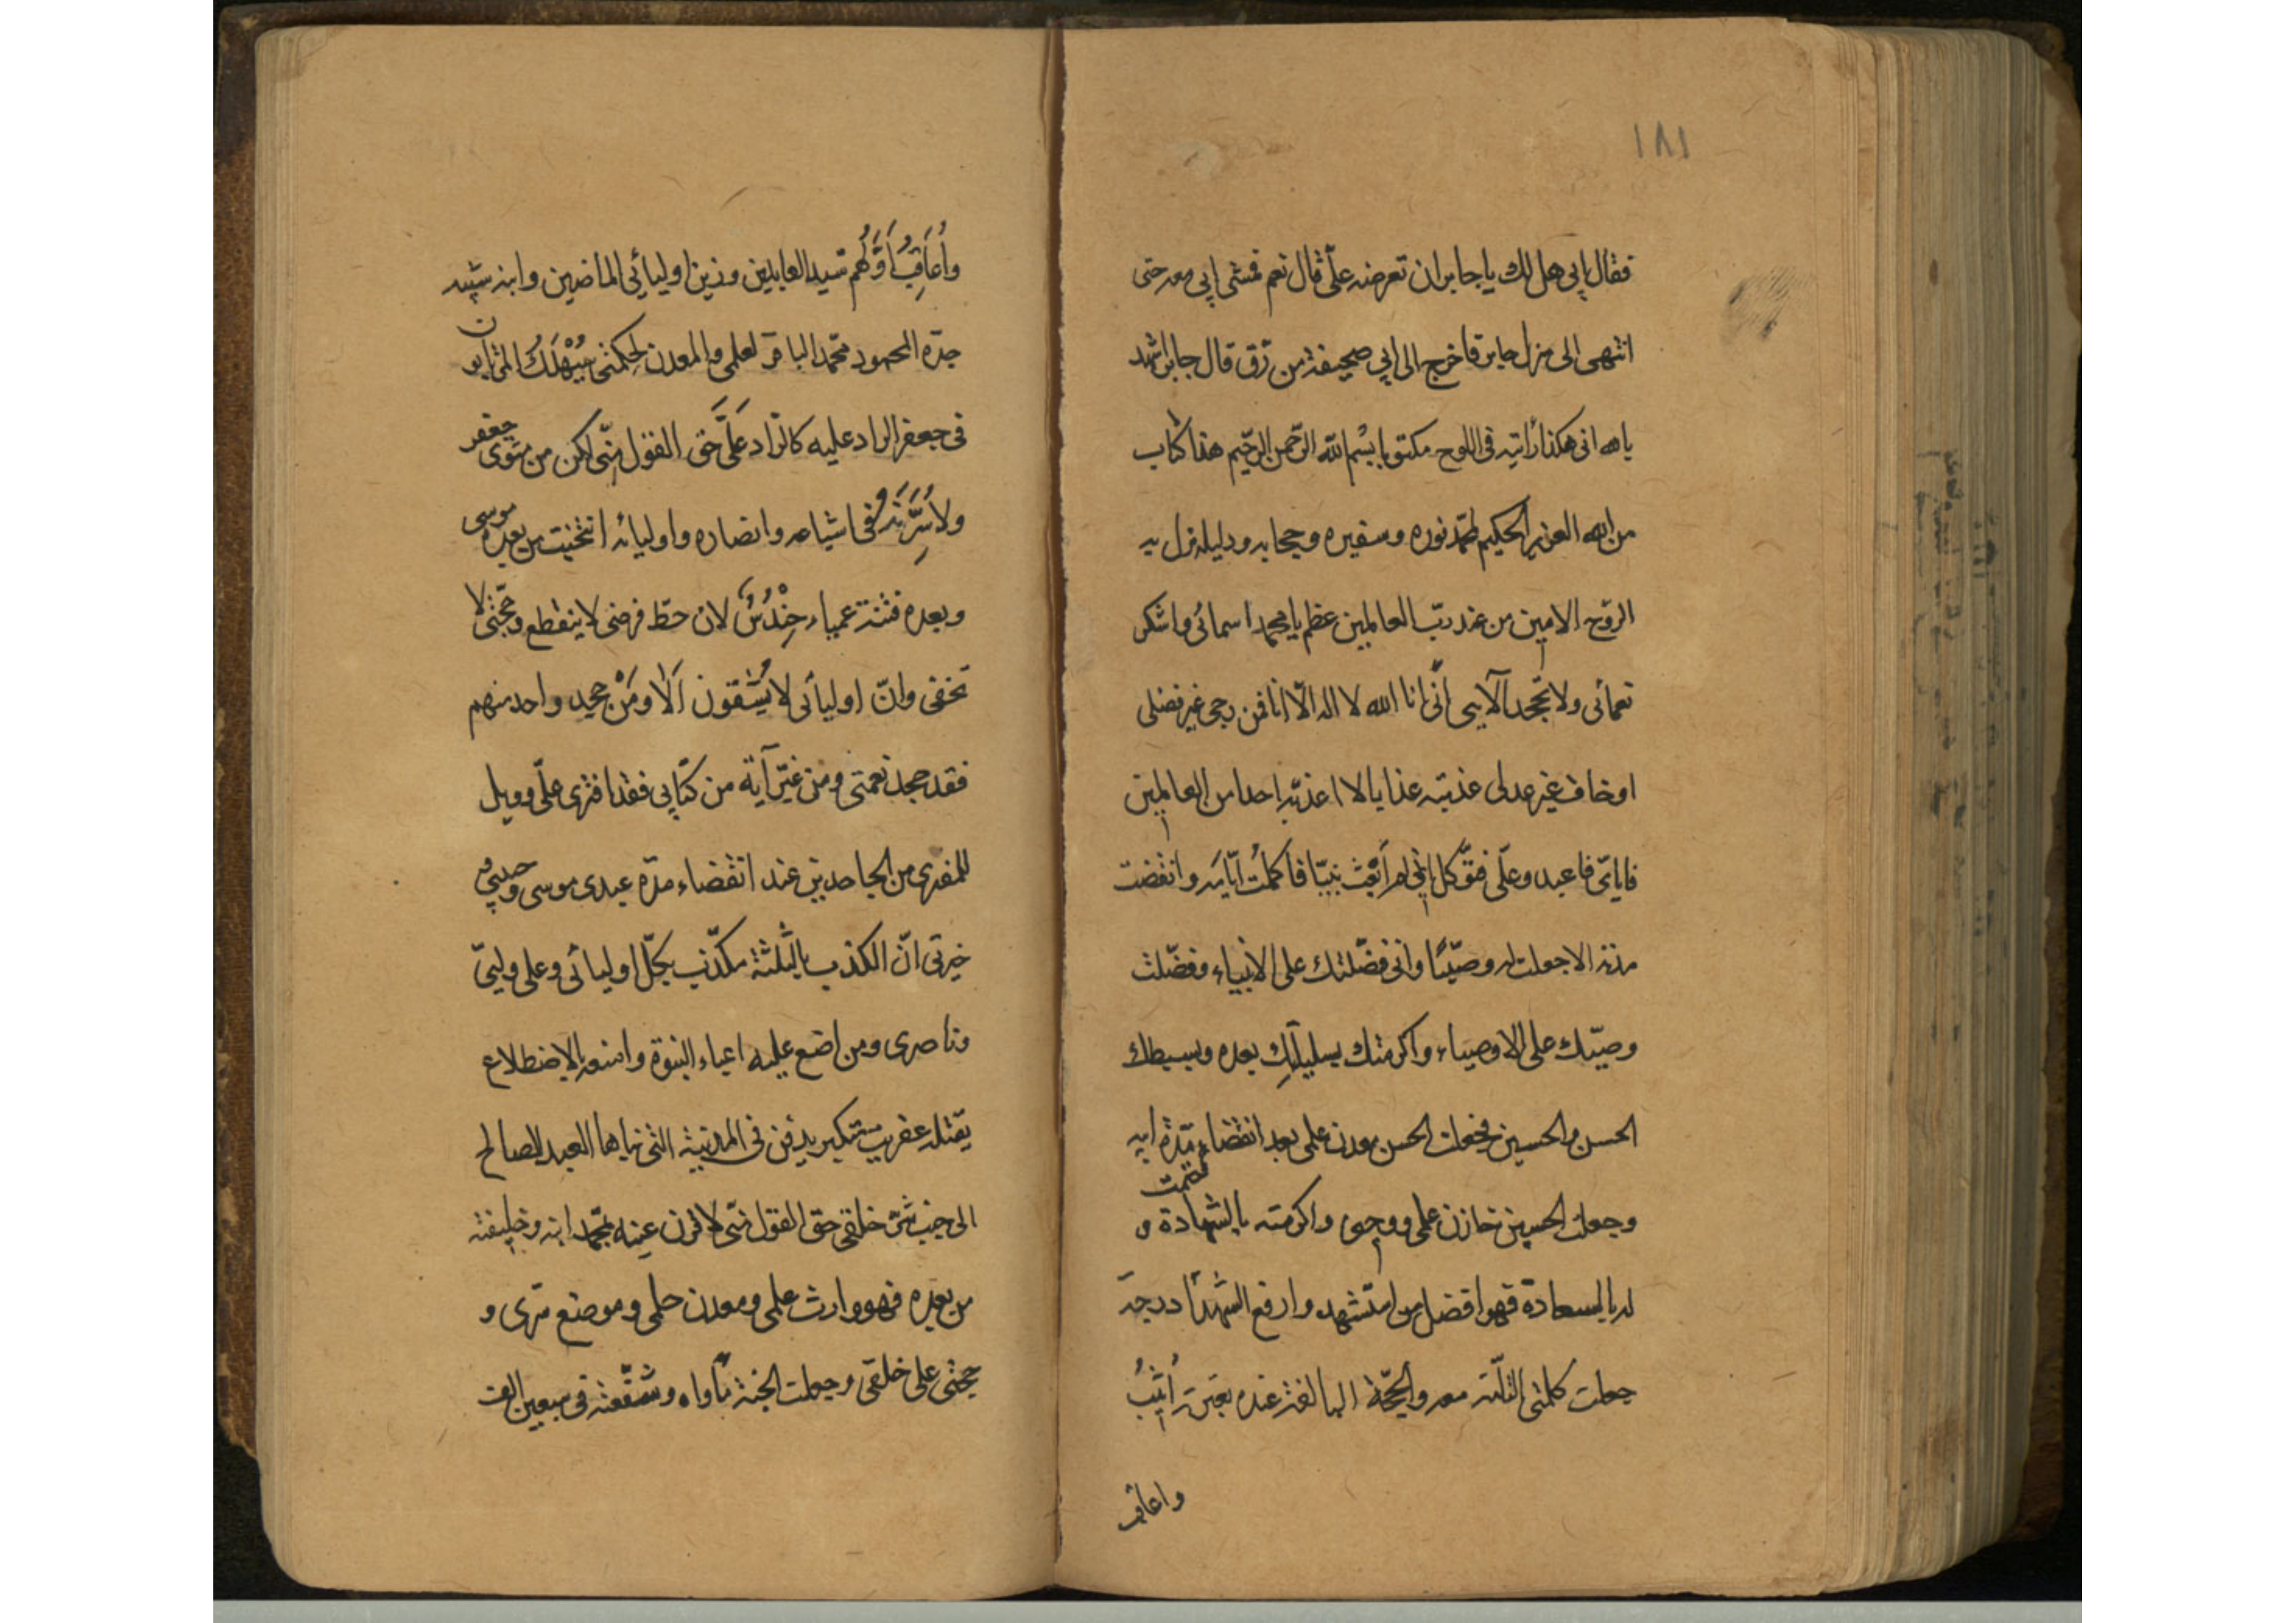 ١٨١
فقال ابي هل لك يا جابر ان تعرضه علّي قال نعم فمشى ابي معه حتى
انتهى الى منزل جابر فاخرج الى ابي صحيفة من رّق قال جابر اشهد
بالله انى هكذا رأيته فى اللوح مكتوبا بسم الله الرّحمن الرّحيم هذا كتاب
من الله العزيز الحكيم لمحمّد نوره وسفيره وحجابه ودليله نزل به
الرّوح الامين من عند ربّ العالمين عظم يا محمد اسمائى واشكر
نعمائى ولا تجحد آلايى انّى انا الله لا اله الّا انا فمن رجى غير فضلى
او خاف غير عدلى عذبته عذابا لا اعذبّه احدا من العالمين
فاياىّ فاعبد وعلّى فتوّكل انّى لم اَبْعث نبيّا فاكملُت ايّامَه وانقضت
مدته الا جعلت له وصيّا وانى فضّلتك على الانبياء وفضّلت
وصيّك على الاوصياء واكرمتك بسليلَيِك بعده وبسبطك
الحسن والحسين فجعلت الحسن معدن علمى بعد انقضاء مّدة ابيه
وجعلت الحسين خازن علمى ووحيى واكرمته بالشهادة و ختمت
له بالسعادة فهو افضل من استشهد وارفع الشّهدآ درجة
جعلت كلمتى التاّمة معه والحجّة البالغة عنده بعترته اُثيبُ
واعاقب
وأُعَاقِبُ اَوَّلُهم سيد العابدين وزين اوليائي الماضين وابنه شبيه
جدّه المحمود محّمد الباقر لعلمى والمعدن لحكمتى سَيُهْلَكُ المرتابون
فى جعفر الراد عليه كالراد عَلَّى حَق القول منّى لاكرمن مثوى جعفر
ولأسُرَّنَّه فى اشياعه وانصاره واوليائه انتخبت من بعده موسى
وبعده فتنة عمياء حِنْدُسٌ لان خيط فرضى لا ينقطع وحّجتى لا
تخفى وانّ اوليائى لا يُشْقون اَلا ومَنْ جحد واحد منهم
فقد جحد نعمتى ومن غيّر آية من كتابي فقد افترى علّى وويل
للمفترى من الجاحدين عند انقضاء مدّة عبدى موسى وحبيبي و
خيرتى انّ المكذب بالثّلثة مكذّب بكلّ اوليائى وعلى وليىّ
وناصرى ومن اضع عليه اعباء النبوة وامنحه بالاضطلاع
يقتله عفريت مستكبر يدفن فى المدينة التى بناها العبد الصالح
الى جنب شرّ خلقى حق القول منّى لاقرن عينه بمحّمد ابنه وخليفته
من بعده فهو وارث علمى ومعدن حلمى وموضع سّرى و
حجتى على خلقى وجعلت الجنة مأواه وشفّعته فى سبعين الف